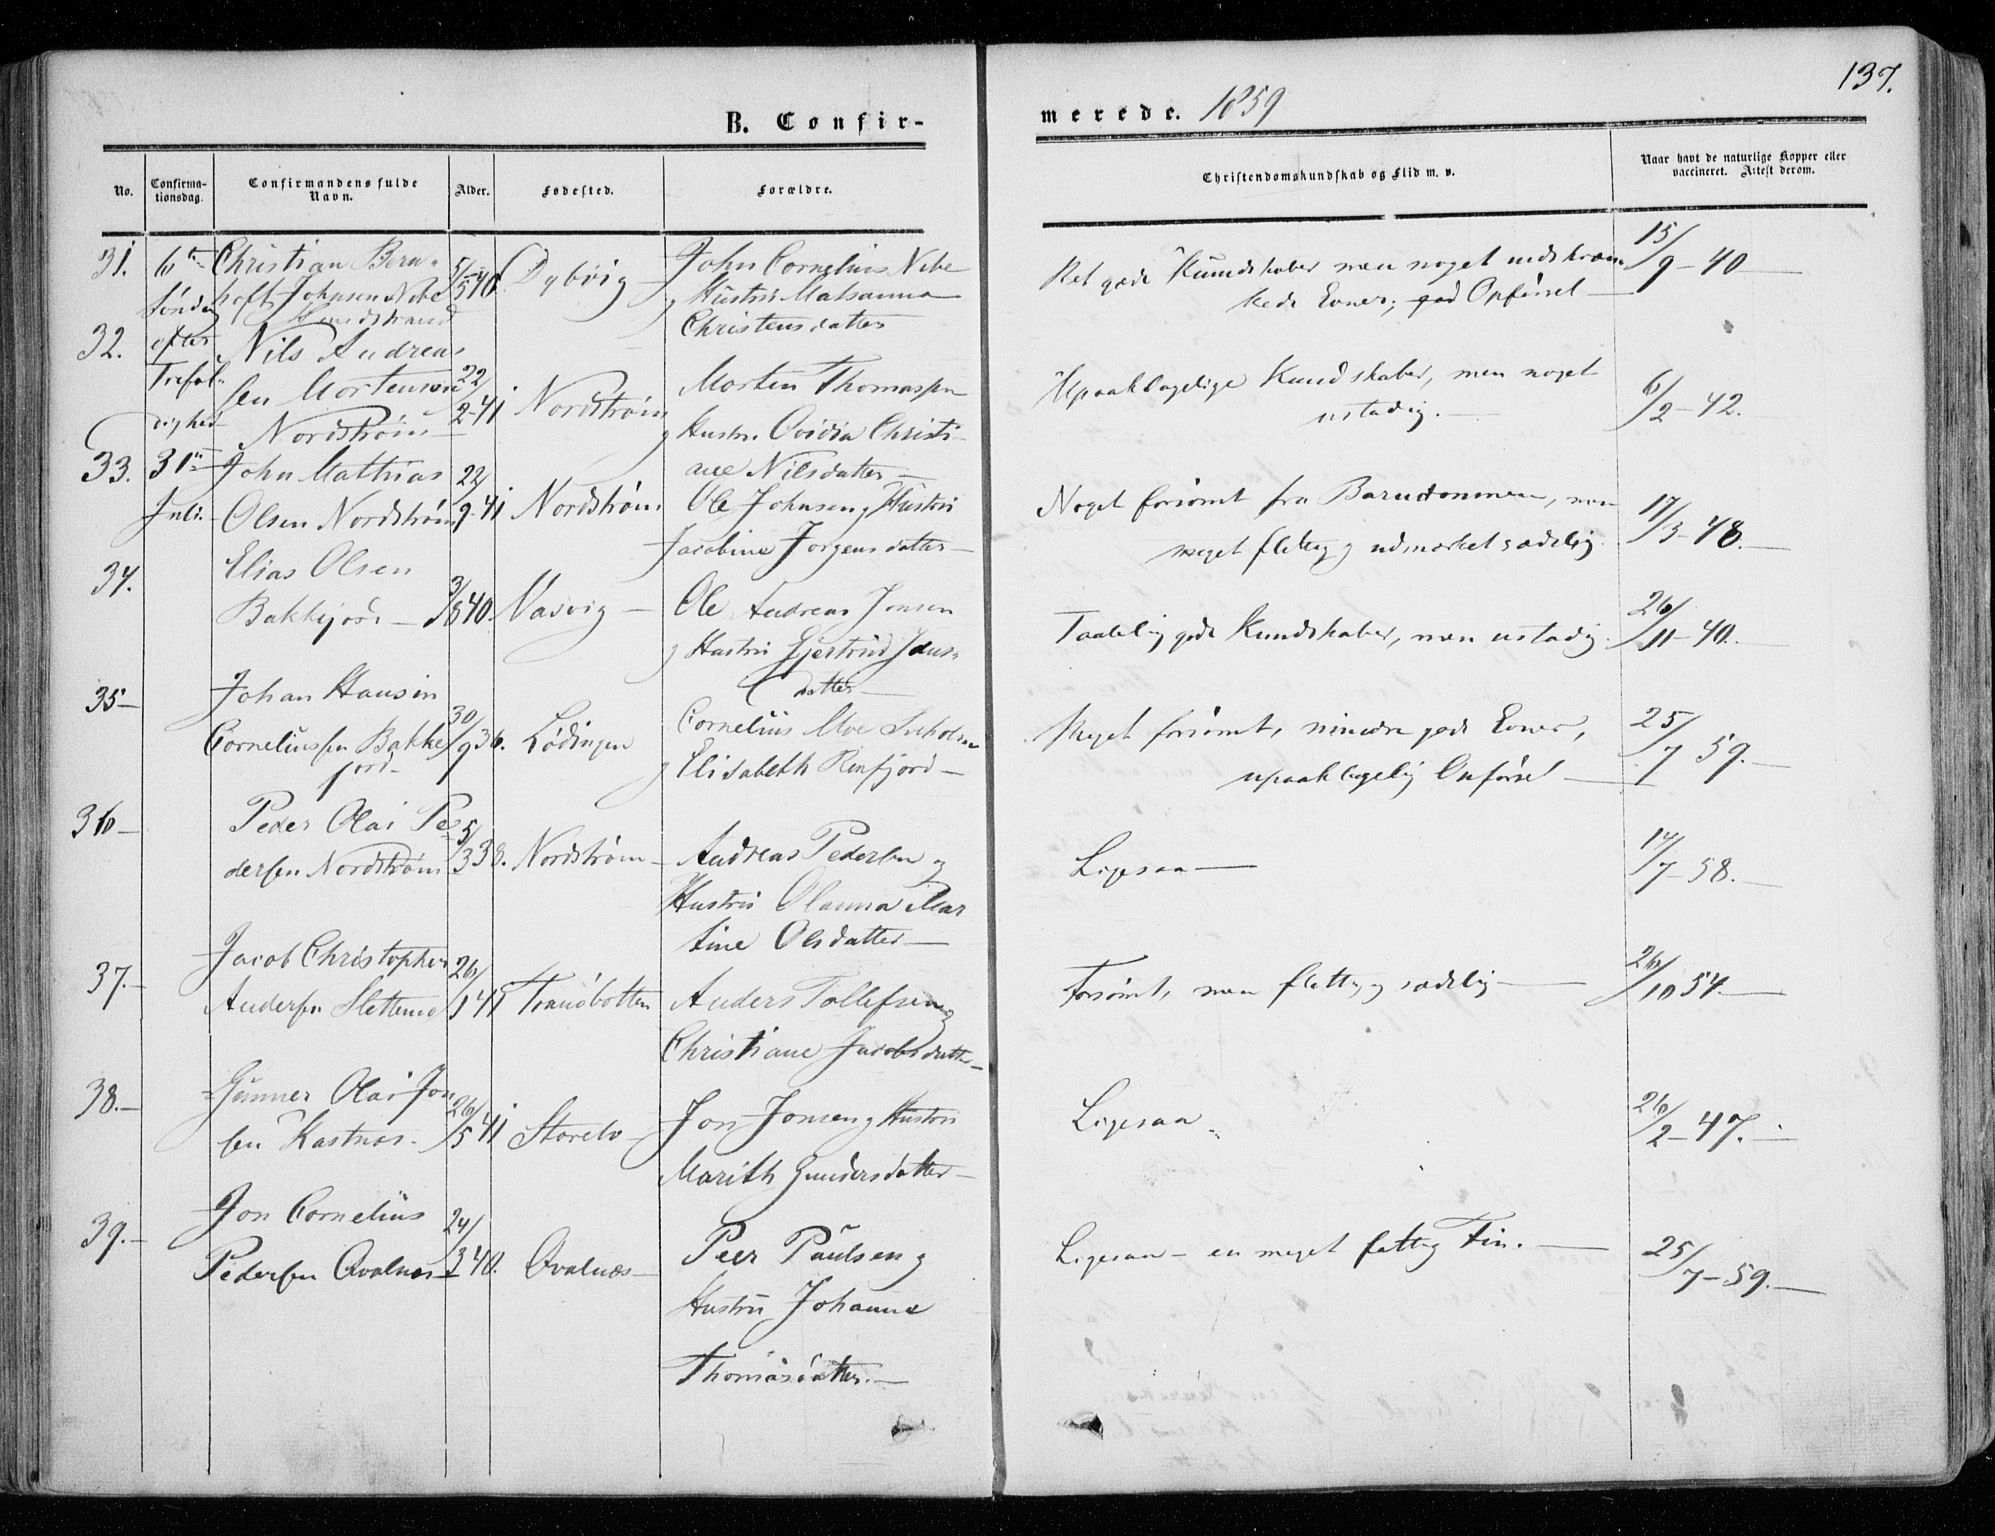 137.
B. Confir-
merede. 1859
No.
Confirma-
tionsdag.
Confirmandens fulde
Navn.
Alder.
Fødested.
Forældre.
Christendomskundskab og Flid m. v.
Naar havt de naturlige Kopper eller
vaccineret. Attest derom.
31. 6te Christian Bern- 5/5 40 Dybvig — John Cornelius Nibe
Søndag hoft Johnsen Nibe
og Hustru Malsanna
Christensdatter
Ret gode Kundskaber men noget indskræn-
kede Evner; god Opførsel —
15/9-40 —
32. efter Nils Andreas
Trefol-
dighed
sen Mortensen 22/2-41 Nordstrøm Morten Thomassen
Nordstrøm —
og Hustru Ovidia Christi-
ane Nilsdatter —
Upaaklagelige Kundskaber, men noget
ustadig. —
6/2-42.
33. 31te John Mathias 22/9-41 Nordstrøm Ole Johnsen og Hustru
Juli. Olsen Nordstrøm
Jacobine Jørgensdatter —
Noget forsømt fra Barndommen, men
meget flittig og udmærket sædelig.
17/3-48. —
34. Elias Olsen
Bakkejord — 3/8 40. Vasvig — Ole Andreas Jonsen
og Hustru Gjertrud Jens-
datter —
Taalelig gode Kundskaber, men ustadig.
26/11-40. —
35 — Johan Hansin
Corneliussen Bakke 30/9 36. Lødingen Cornelius Moe
fjord —
og Elisabeth Renfjord —
Meget forsømt, mindre gode Evner,
upaaklagelig Opførsel —
25/7 59. —
36 — Peder Olai Pe
dersen Nordstrøm 5/3 38. Nordstrøm — Andreas Pedersen og
Hustru Olanna Mar
tine Olsdatter —
Ligesaa —
17/7-58. —
37. — Jacob Christopher
Andersen Slettemo 26/1 41 Trandbotten Anders Tollefsen og
Christiane Jacobsdatter —
Forsømt, men flittig og sædelig —
26/10 54. —
38. — Gunner Olai Jon
sen Kastnæs — 26/5 41 Storebo — Jon Jonsen og Hustru
Marith Gundersdatter —
Ligesaa
26/2-47. —
39. — Jon Cornelius
Pedersen Qvalnæs — 24/3 40. Qvalnæs — Peer Paulsen og
Hustru Johanne
Thomasdatter. —
Ligesaa — en meget fattig Fin. —
25/7-59. —